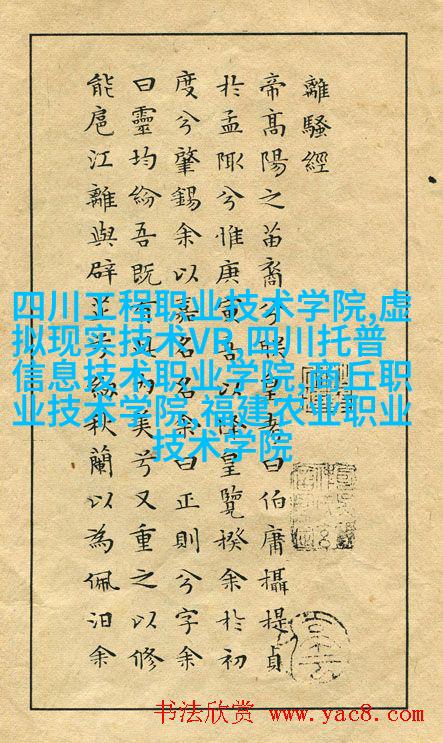 離騷經
帝高陽之苗裔兮朕皇考曰伯庸攝提貞
於孟陬兮惟庚寅吾以降皇覽揆余於初
度兮肇錫余以嘉名名余曰正則兮字余
曰靈均紛吾既有此內美兮又重之以修
能扈江離與辟芷兮紉秋蘭以為佩汨余
四川工程职业技术学院,虚
拟现实技术VR,四川托普
信息技术职业学院,商丘职
业技术学院,福建农业职业
技术学院
书法欣赏 www.yac8.com